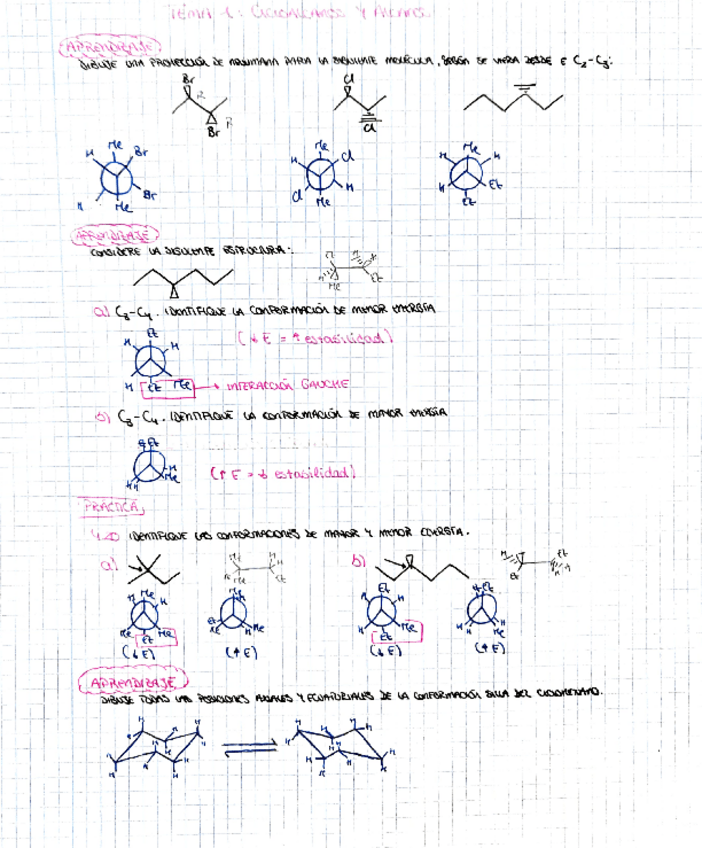 TEMA 1: CICLOALCANOS Y ALCANOS
APRENDIZAJE
DIBUJE UNA PROYECCIÓN DE NEWMANN PARA LA SIGUIENTE MOLÉCULA, SEGÚN SE VIERA DESDE E C₂-C₃:
Br R Br R
Cl Cl
Me Br H Br H Me
Me Cl H H Cl Me
Me H H Et Et
APRENDIZAJE
CONSIDERE LA SIGUIENTE ESTRUCTURA:
Et H Me H Et
a) C₃-C₄. IDENTIFIQUE LA CONFORMACIÓN DE MENOR ENERGÍA
(↓E = ↑ estabilidad)
Et H H H Et Me → INTERACCIÓN GAUCHE
b) C₃-C₄. IDENTIFIQUE LA CONFORMACIÓN DE MAYOR ENERGÍA
Et Et H Me H H
(↑E = ↓ estabilidad)
PRÁCTICA
IDENTIFIQUE LAS CONFORMACIONES DE MAYOR Y MENOR ENERGÍA.
a) b)
Me H H Me Et Me
Et H H Me Et
(↓E) (↑E) (↓E) (↑E)
APRENDIZAJE
DIBUJE TODAS LAS POSICIONES AXIALES Y ECUATORIALES DE LA CONFORMACIÓN SILLA DEL CICLOHEXANO.
H H H H H H H H H H